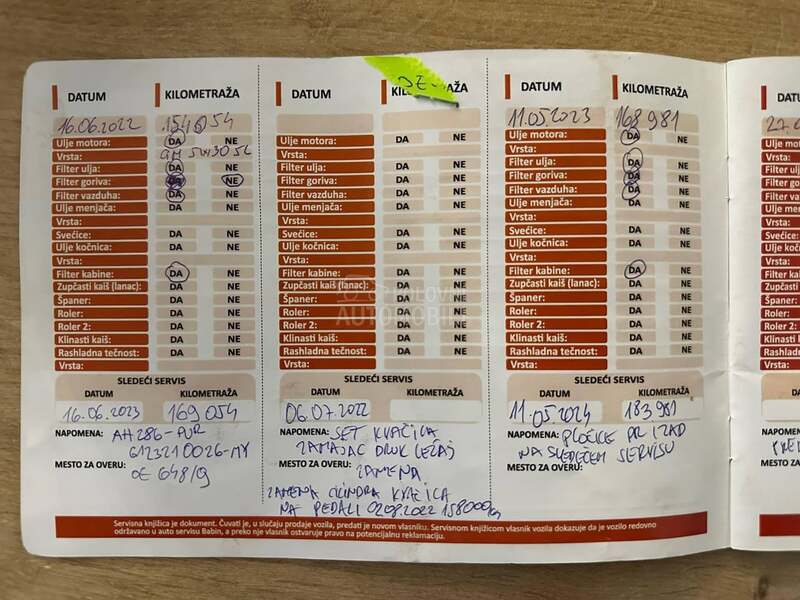 DATUM KILOMETRAŽA
16.06.2022 154054
Ulje motora: DA NE
Vrsta: GM 5W30 5L
Filter ulja: DA NE
Filter goriva: DA NE
Filter vazduha: DA NE
Ulje menjača: DA NE
Vrsta:
Svećice: DA NE
Ulje kočnica: DA NE
Vrsta:
Filter kabine: DA NE
Zupčasti kaiš (lanac): DA NE
Španer: DA NE
Roler: DA NE
Roler 2: DA NE
Klinasti kaiš: DA NE
Rashladna tečnost: DA NE
Vrsta:
SLEDEĆI SERVIS
DATUM KILOMETRAŽA
16.06.2023 169054
NAPOMENA: AH286-PUR
6123210026-MY
MESTO ZA OVERU: OE 648/9
DATUM
Ulje motora: DA NE
Vrsta:
Filter ulja: DA NE
Filter goriva: DA NE
Filter vazduha: DA NE
Ulje menjača: DA NE
Vrsta:
Svećice: DA NE
Ulje kočnica: DA NE
Vrsta:
Filter kabine: DA NE
Zupčasti kaiš (lanac): DA NE
Španer: DA NE
Roler: DA NE
Roler 2: DA NE
Klinasti kaiš: DA NE
Rashladna tečnost: DA NE
Vrsta:
SLEDEĆI SERVIS
DATUM KILOMETRAŽA
06.07.2022
NAPOMENA: SET KVAČILA
ZAMAJAC DRUK LEŽAJ
MESTO ZA OVERU: ZAMENA
ZAMENA CILINDRA KVAČILA
NA PEDALI 02.08.2022 158000km
DATUM KILOMETRAŽA
11.05.2023 168981
Ulje motora: DA NE
Vrsta:
Filter ulja: DA NE
Filter goriva: DA NE
Filter vazduha: DA NE
Ulje menjača: DA NE
Vrsta:
Svećice: DA NE
Ulje kočnica: DA NE
Vrsta:
Filter kabine: DA NE
Zupčasti kaiš (lanac): DA NE
Španer: DA NE
Roler: DA NE
Roler 2: DA NE
Klinasti kaiš: DA NE
Rashladna tečnost: DA NE
Vrsta:
SLEDEĆI SERVIS
DATUM KILOMETRAŽA
11.05.2024 183981
NAPOMENA: PLOČICE PR IZAD
NA SLEDEĆEM SERVISU
MESTO ZA OVERU:
Servisna knjižica je dokument. Čuvati je, u slučaju prodaje vozila, predati je novom vlasniku. Servisnom knjižicom vlasnik vozila dokazuje da je vozilo redovno
održavano u auto servisu Babin, a preko nje vlasnik ostvaruje pravo na potencijalnu reklamaciju.